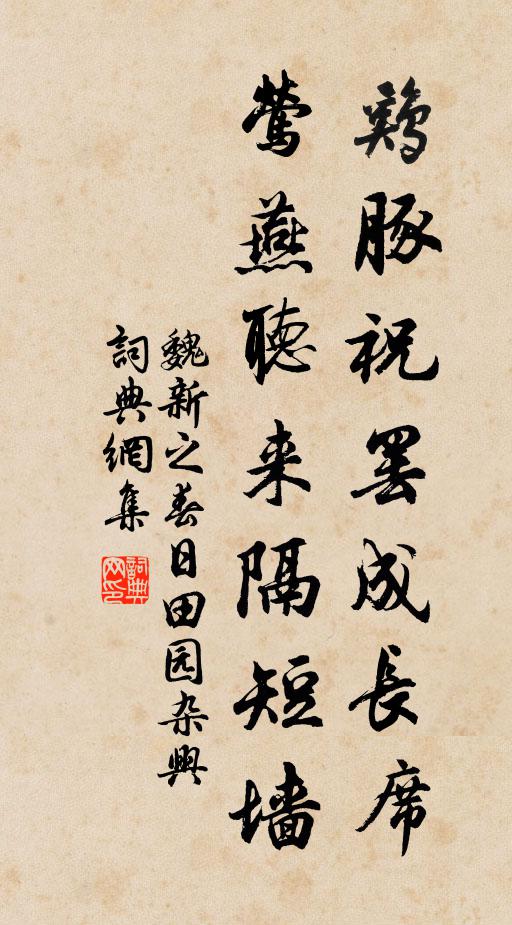 鶏豚祝罢成長席
鶯燕聴来隔短墙
魏新之春日田园杂興
詞典網集
詞典网印